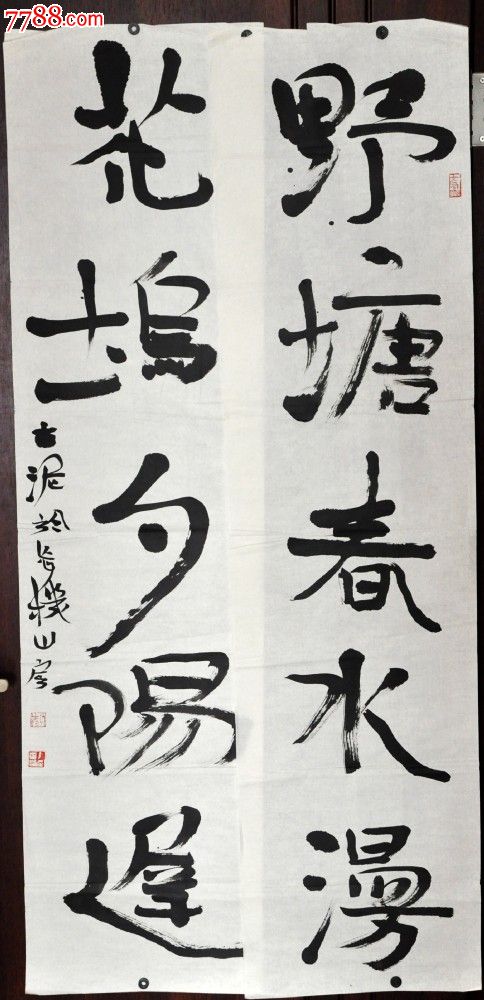 7788.com
野塘春水漫
花塢夕陽遲
古泥於忘機山房